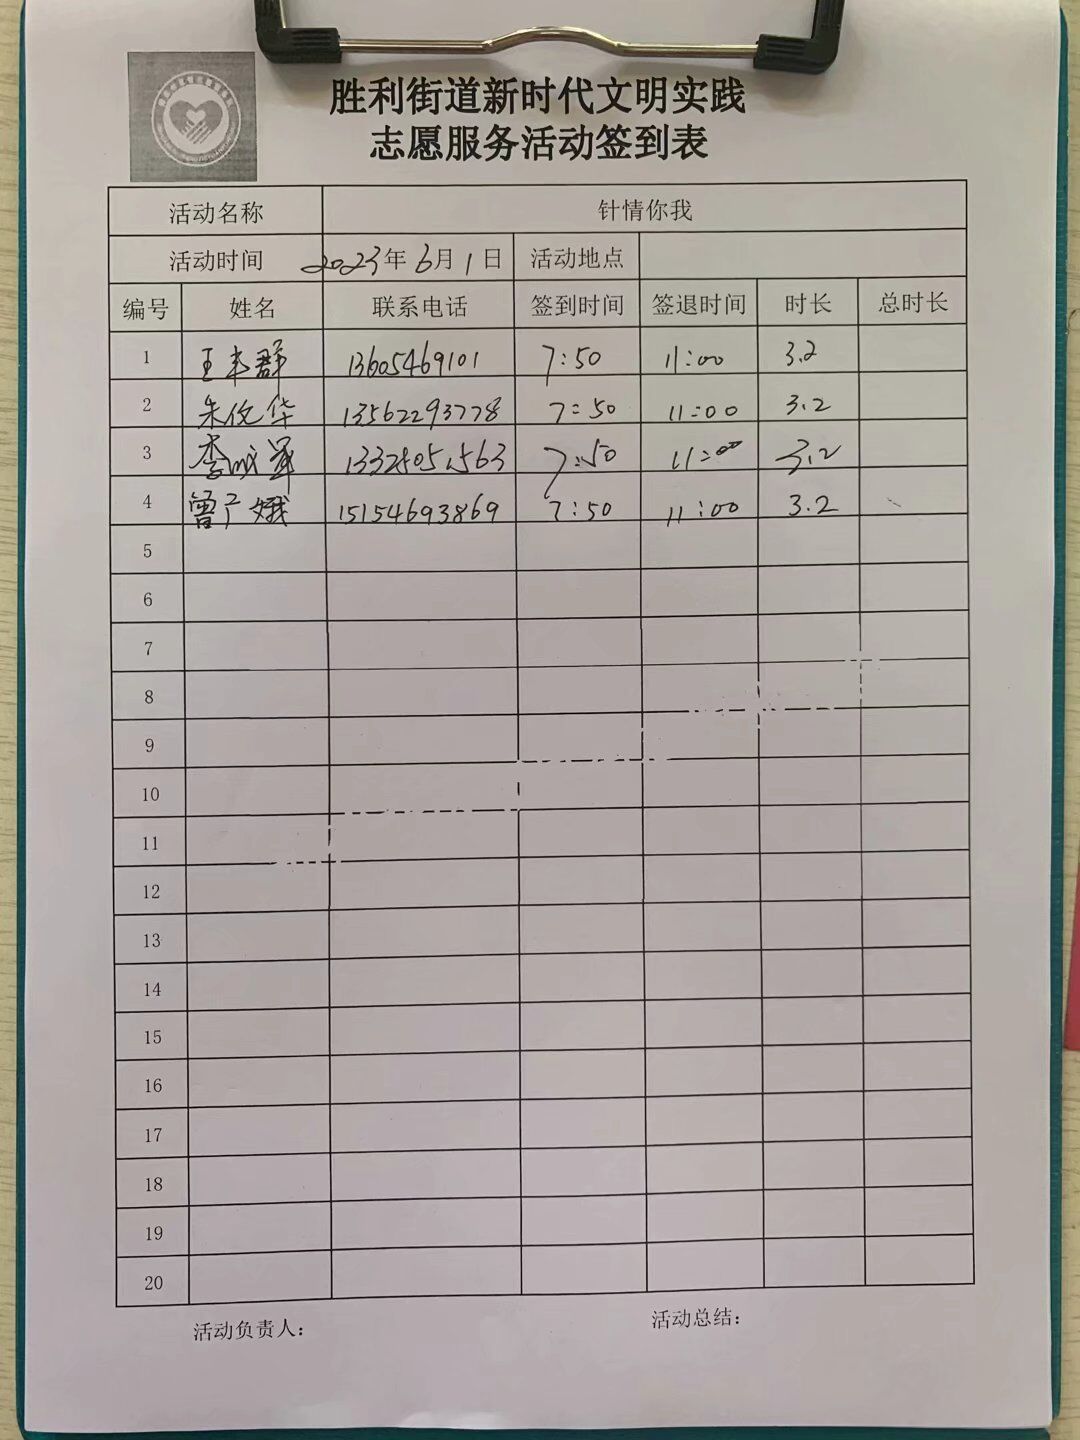 胜利街道新时代文明实践
志愿服务活动签到表
活动名称 针情你我
活动时间 2023年6月1日 活动地点
编号 姓名 联系电话 签到时间 签退时间 时长 总时长
1 王丰群 13605469101 7:50 11:00 3.2
2 朱俊华 13562293778 7:50 11:00 3.2
3 李 7:50 11:00 3.2
4 曾广娥 15154693869 7:50 11:00 3.2
5
6
7
8
9
10
11
12
13
14
15
16
17
18
19
20
活动负责人: 活动总结: